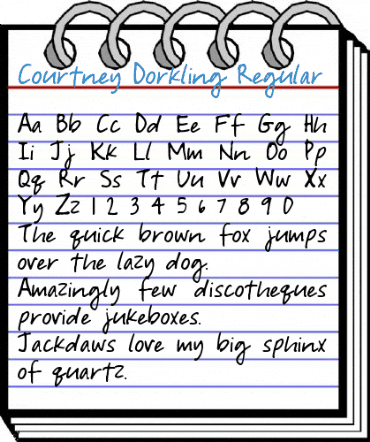 Courtney Dorkling Regular
Aa Bb Cc Dd Ee Ff Gg Hh
Ii Jj Kk Ll Mm Nn Oo Pp
Qq Rr Ss Tt Uu Vv Ww Xx
Yy Zz 1 2 3 4 5 6 7 8 9 0
The quick brown fox jumps
over the lazy dog.
Amazingly few discotheques
provide jukeboxes.
Jackdaws love my big sphinx
of quartz.